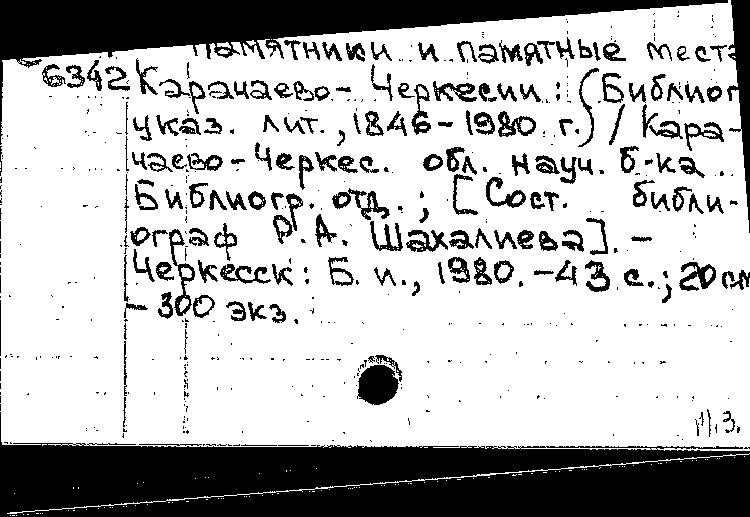 Памятники и памятные места
6342 Карачаево-Черкесии: (Библиог
указ. лит., 1846-1980 г.) / Кара-
чаево-Черкес. обл. науч. б-ка.
Библиогр. отд.; [Сост. библи-
ограф Р.А. Шахалиева]. -
Черкесск: Б. и., 1980. - 43 с.; 20 см
- 300 экз.